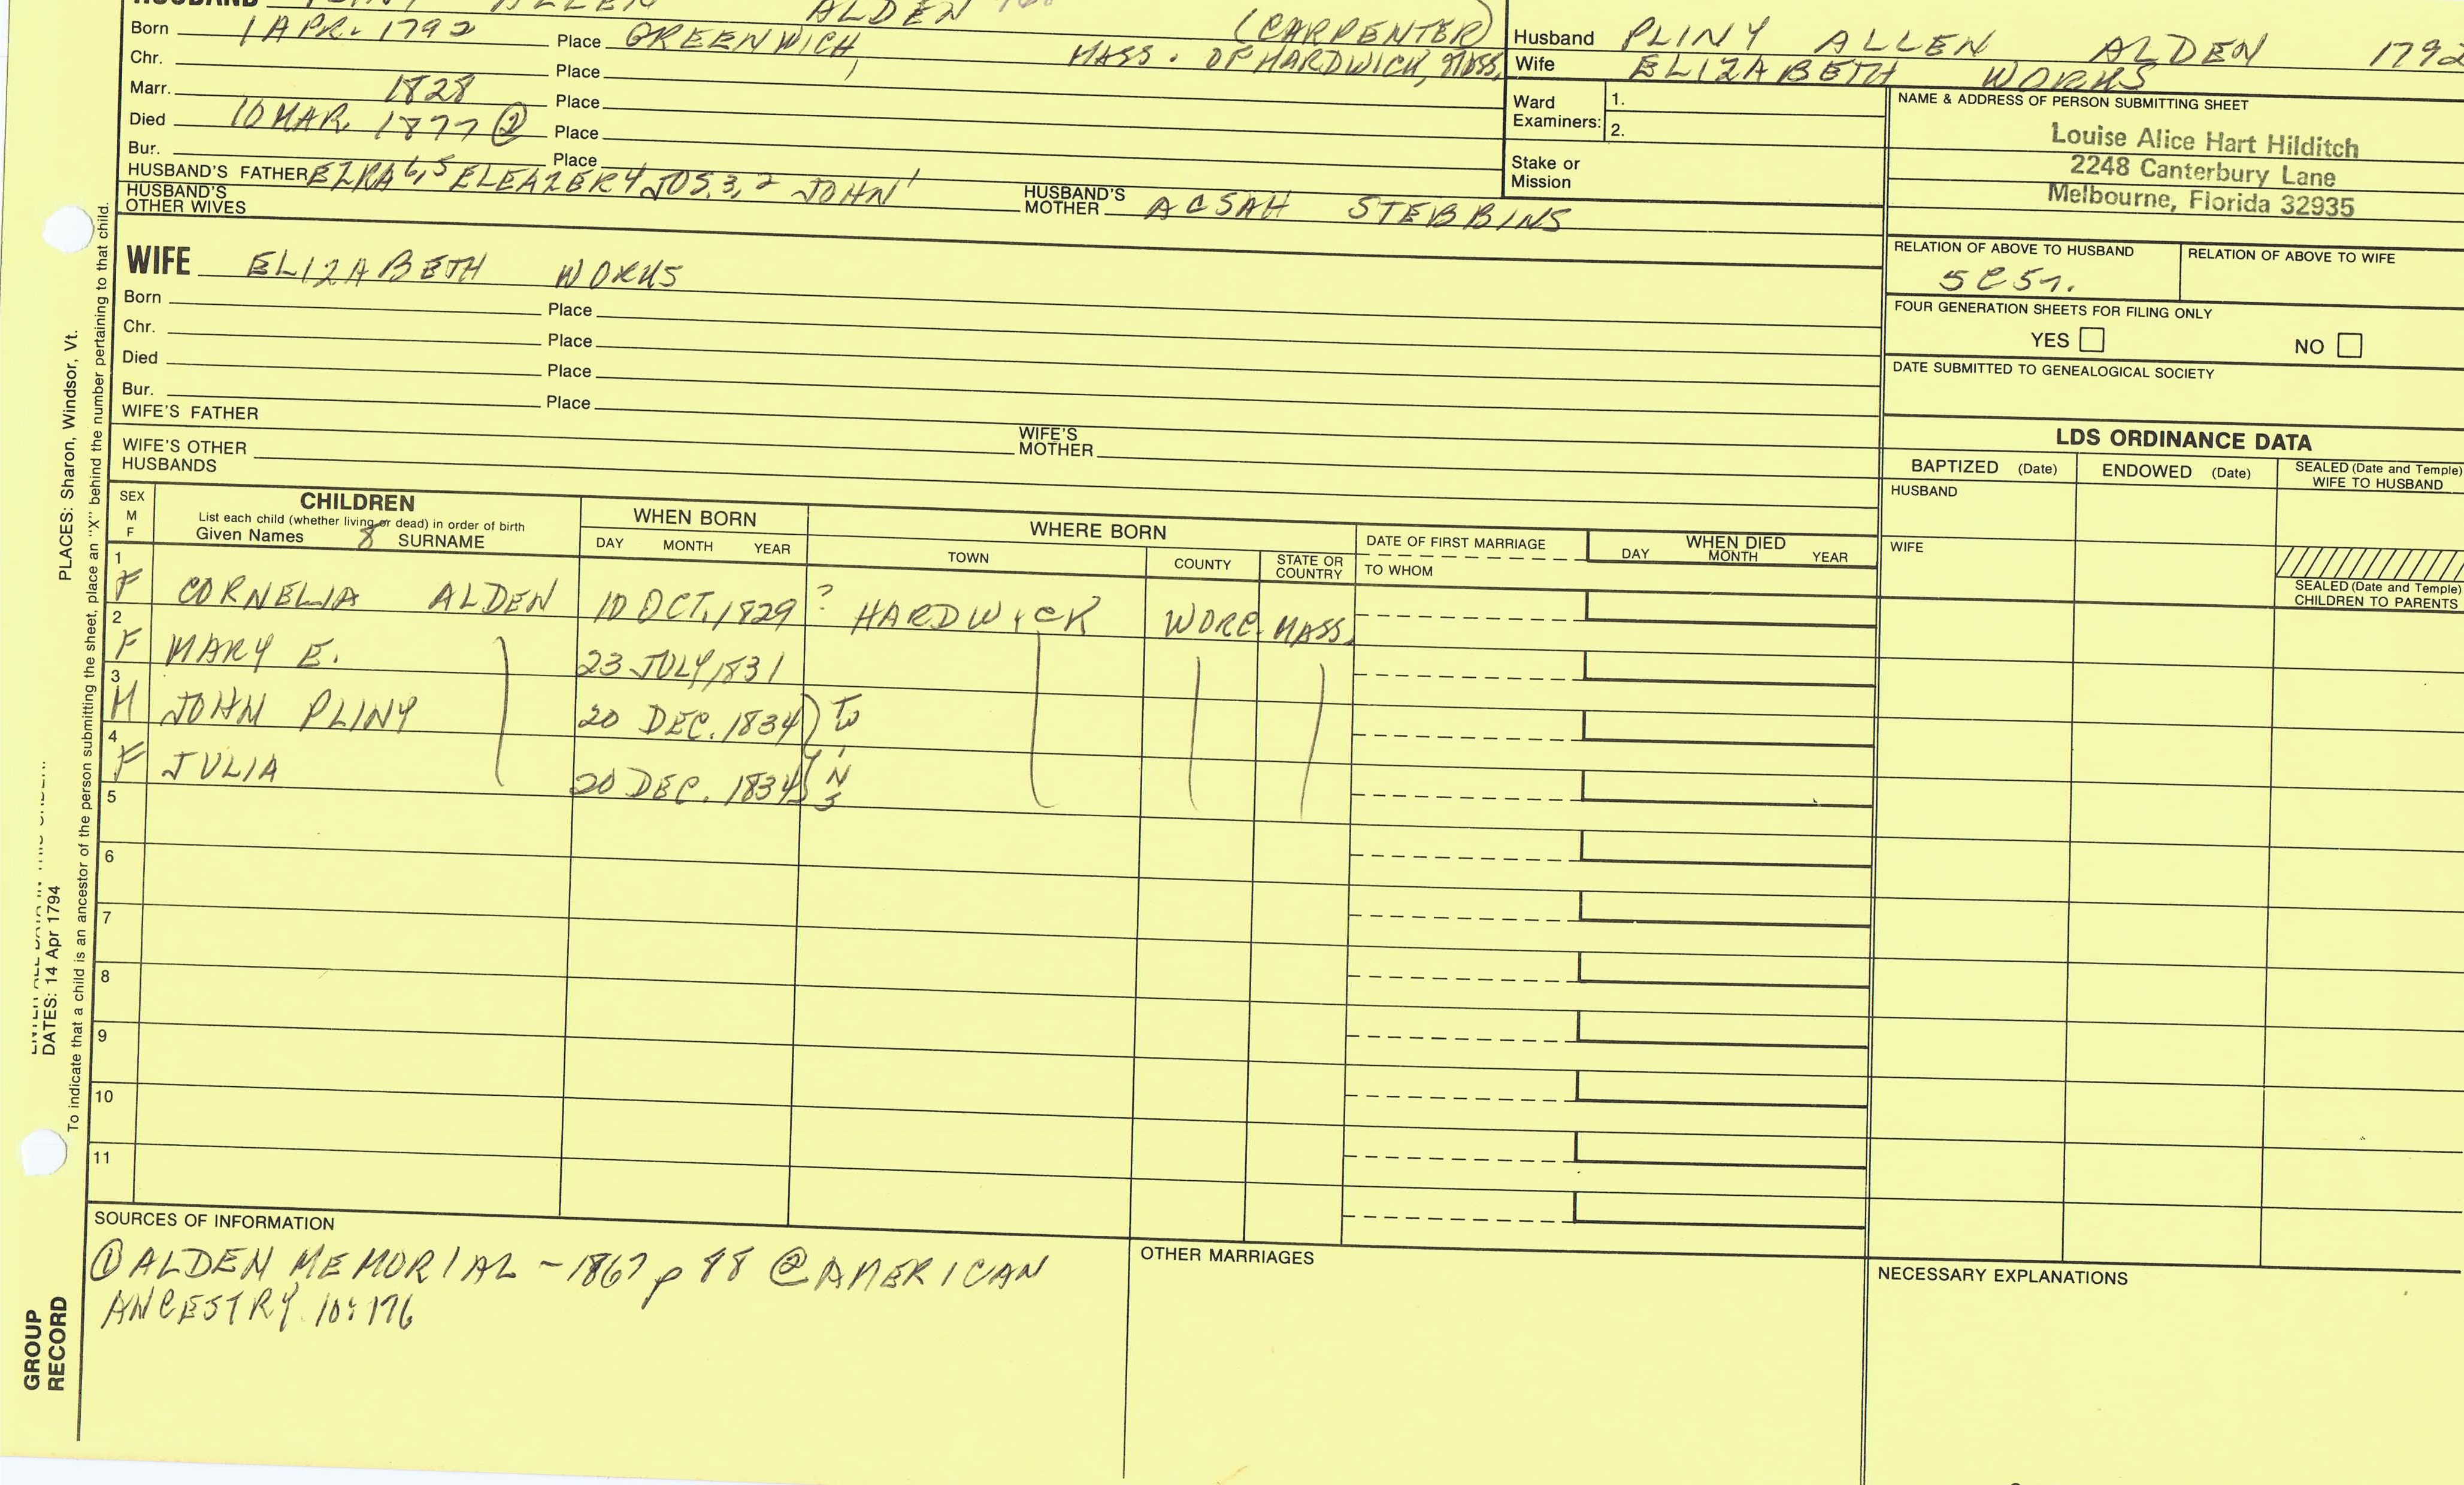 HUSBAND PLINY ALLEN ALDEN
(CARPENTER)
Born 1 APR. 1792 Place GREENWICH, MASS. OF HARDWICK, MASS.
Chr. Place
Marr. 1828 Place
Died 10 MAR. 1877 ② Place
Bur. Place
HUSBAND'S FATHER EZRA 6,5 ELEAZER 4 JOS. 3,2 JOHN 1
HUSBAND'S MOTHER ACSAH STEBBINS
HUSBAND'S OTHER WIVES
Husband PLINY ALLEN ALDEN 1792
Wife ELIZABETH WORKS
Ward Examiners: 1.
2.
Stake or Mission
NAME & ADDRESS OF PERSON SUBMITTING SHEET
Louise Alice Hart Hilditch
2248 Canterbury Lane
Melbourne, Florida 32935
RELATION OF ABOVE TO HUSBAND
RELATION OF ABOVE TO WIFE
FOUR GENERATION SHEETS FOR FILING ONLY
YES NO
DATE SUBMITTED TO GENEALOGICAL SOCIETY
WIFE ELIZABETH WORKS
Born Place
Chr. Place
Died Place
Bur. Place
WIFE'S FATHER
WIFE'S MOTHER
WIFE'S OTHER HUSBANDS
LDS ORDINANCE DATA
BAPTIZED (Date) ENDOWED (Date) SEALED (Date and Temple) WIFE TO HUSBAND
HUSBAND
WIFE
SEALED (Date and Temple) CHILDREN TO PARENTS
SEX M F
CHILDREN
List each child (whether living or dead) in order of birth
Given Names 8 SURNAME
WHEN BORN
DAY MONTH YEAR
WHERE BORN
TOWN COUNTY STATE OR COUNTRY
DATE OF FIRST MARRIAGE
TO WHOM
WHEN DIED
DAY MONTH YEAR
1 F CORNELIA ALDEN 10 OCT. 1829 ? HARDWICK WORC. MASS.
2 F MARY E. 23 JULY 1831
3 M JOHN PLINY 20 DEC. 1834
4 F JULIA 20 DEC. 1834
5
6
7
8
9
10
11
SOURCES OF INFORMATION
① ALDEN MEMORIAL - 1867 p 88 ② AMERICAN
ANCESTRY 10:176
OTHER MARRIAGES
NECESSARY EXPLANATIONS
DATES: 14 Apr 1794
PLACES: Sharon, Windsor, Vt.
To indicate that a child is an ancestor of the person submitting the sheet, place an "X" behind the number pertaining to that child.
GROUP
RECORD